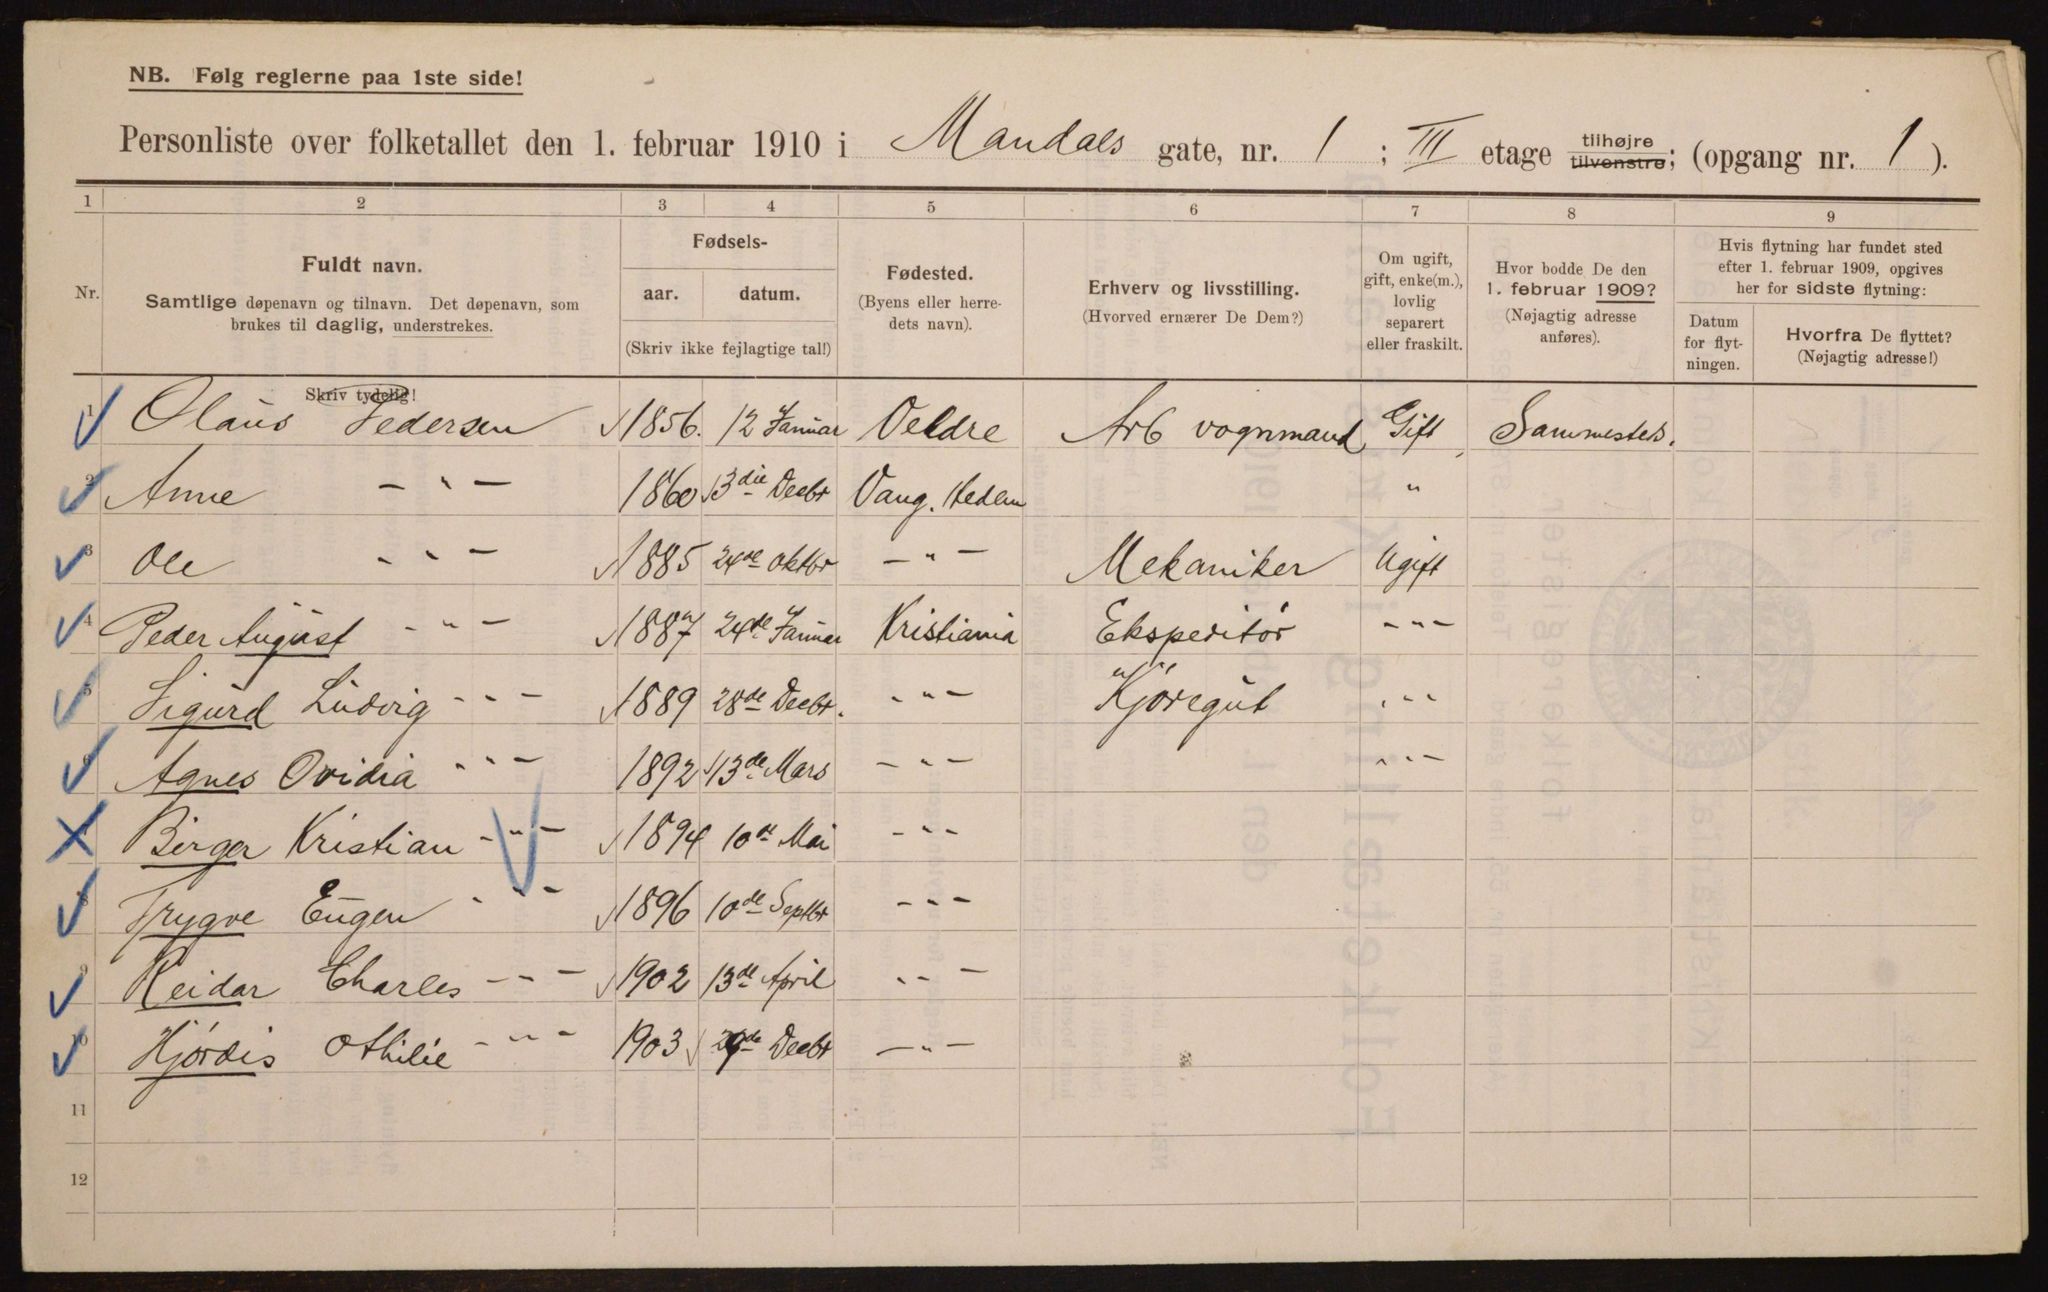 NB. Følg reglerne paa 1ste side!
Personliste over folketallet den 1. februar 1910 i Mandals gate, nr. 1 ; III etage tilhøjre tilvenstre; (opgang nr. 1 ).
1 2 3 4 5 6 7 8 9
Nr.
Fuldt navn.
Samtlige døpenavn og tilnavn. Det døpenavn, som
brukes til daglig, understrekes.
Fødsels-
aar. datum.
(Skriv ikke fejlagtige tal!)
Fødested.
(Byens eller herre-
dets navn).
Erhverv og livsstilling.
(Hvorved ernærer De Dem?)
Om ugift,
gift, enke(m.),
lovlig
separert
eller fraskilt.
Hvor bodde De den
1. februar 1909?
(Nøjagtig adresse
anføres).
Hvis flytning har fundet sted
efter 1. februar 1909, opgives
her for sidste flytning:
Datum
for flyt-
ningen.
Hvorfra De flyttet?
(Nøjagtig adresse!)
Skriv tydelig!
1 Olaus Pedersen 1856. 12 Januar Veldre Arb vognmand Gift Sammesteds.
2 Anne - " - 1860 13die Decbr Vang. Hedem "
3 Ole - " - 1885 24de Oktbr - " - Mekaniker Ugift
4 Peder August - " - 1887 24de Januar Kristiania Ekspeditør - " -
5 Sigurd Ludvig - " - 1889 28de Decbr. - " - Kjøregut - " -
6 Agnes Ovidia - " - 1892 13de Mars - " - - " -
7 Birger Kristian - " - 1894 10de Mai - " -
8 Trygve Eugen - " - 1896 10de Septbr - " -
9 Reidar Charles - " - 1902 13de April - " -
10 Hjørdis Othilie - " - 1903 Decbr - " -
11
12